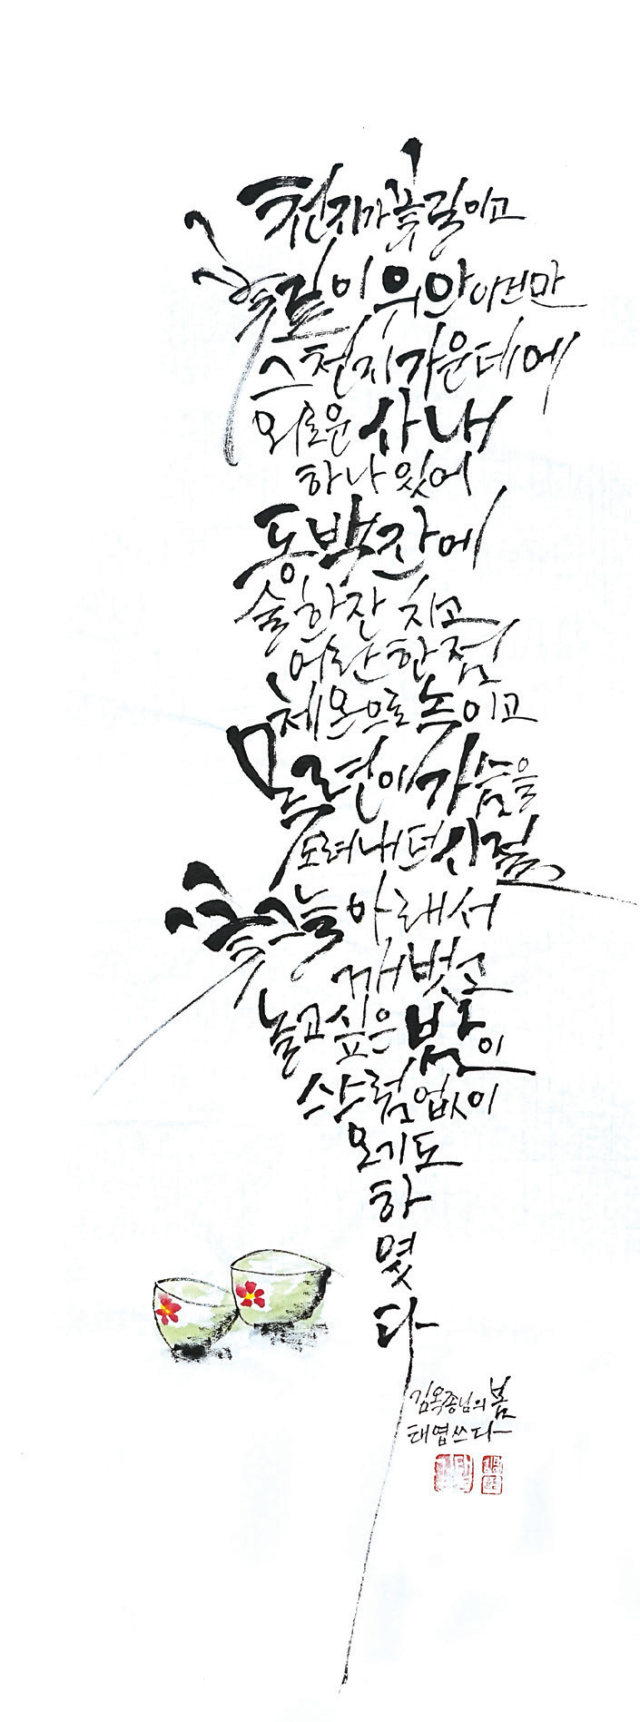 천지가 꽃길이고
꽃길이 위안이건만
그 천지 가운데에
외로운 사내
하나 있어
동백잔에
술 한잔 치고
어란 한 점
체온으로 녹이고
목련이 가슴을
도려내던 시절
꽃그늘 아래서
깨벗고
놀고 싶은 봄날이
스스럼없이
오기도
하
였
다
김옥종님의 봄
태엽쓰다